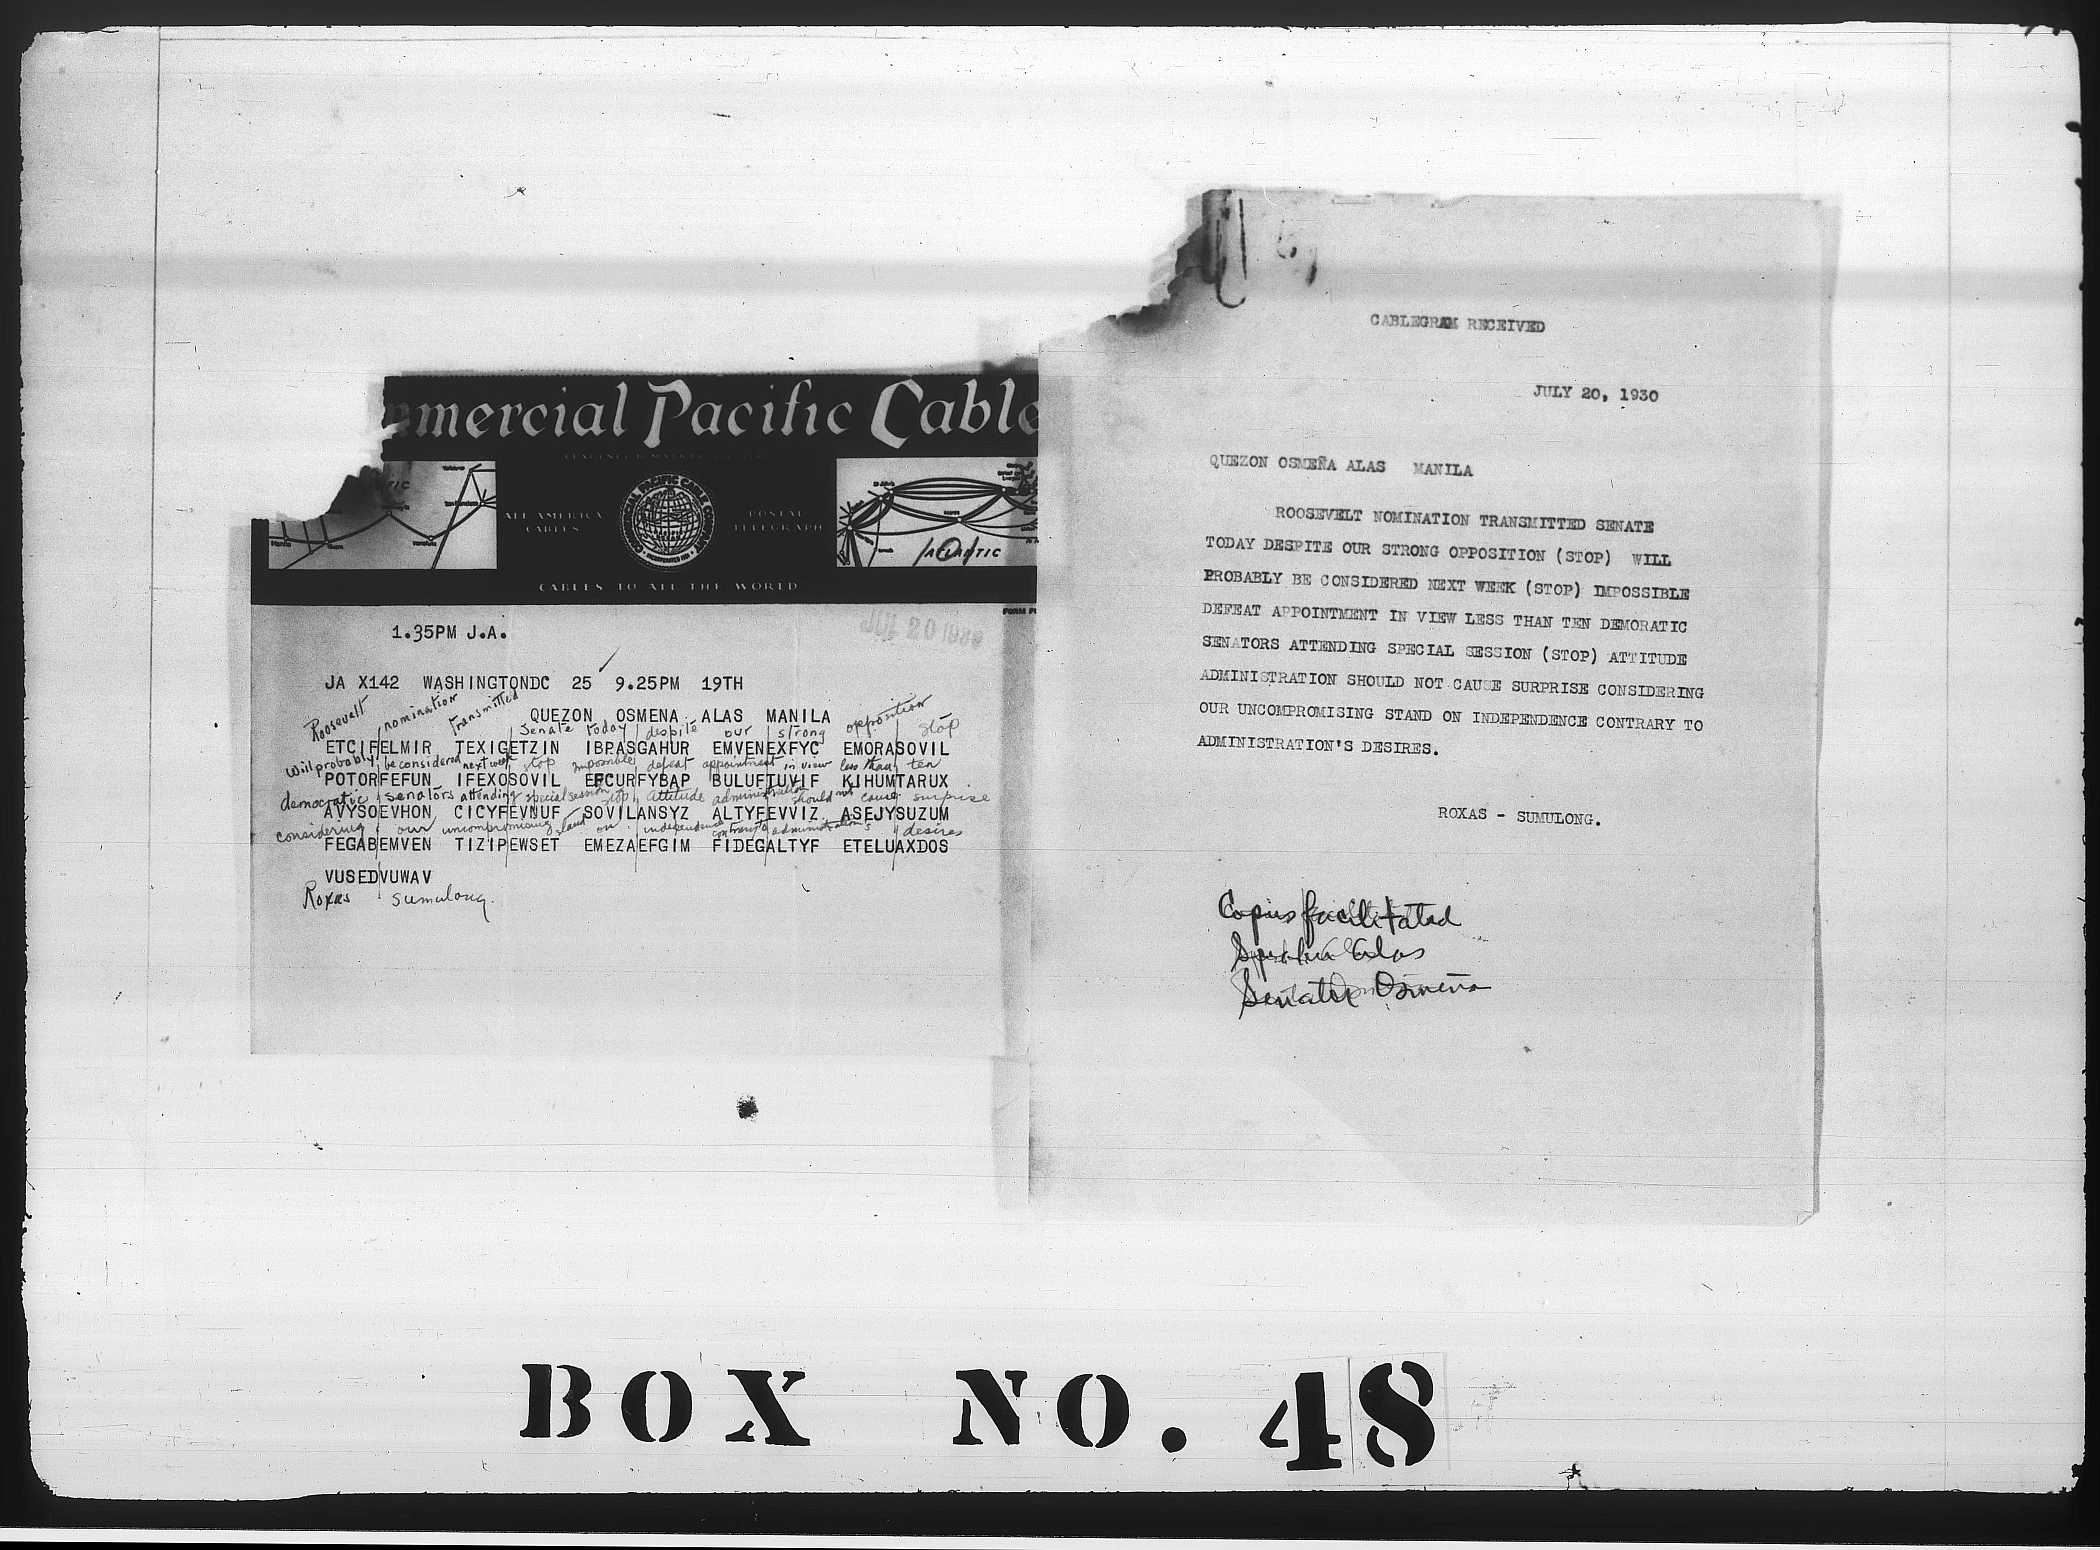 mmercial Pacific Cable
ALL AMERICA
CABLES
POSTAL
TELEGRAPH
COMMERCIAL PACIFIC CABLE COMPANY
ATLANTIC
CABLES TO ALL THE WORLD
1.35PM J.A.
JUL 20 1930
JA X142 WASHINGTONDC 25 9.25PM 19TH
Roosevelt nomination transmitted
QUEZON OSMENA ALAS MANILA
Senate today despite our strong opposition stop
ETCIFELMIR TEXIGETZIN IBPASGAHUR EMVENEXFYC EMORASOVIL
Will probably be considered next week stop Impossible defeat appointment in view less than ten
POTORFEFUN IFEXOSOVIL EFCURFYBAP BULUFTUVIF KIHUMTARUX
democratic senators attending special session stop attitude administration should not cause surprise
AVYSOEVHON CICYFEVNUF SOVILANSYZ ALTYFEVVIZ ASEJYSUZUM
considering our uncompromising stand on independence contrary to administration's desires
FEGABEMVEN TIZIPEWSET EMEZAEFGIM FIDEGALTYF ETELUAXDOS
VUSEDVUWAV
Roxas sumulong.
CABLEGRAM RECEIVED
JULY 20, 1930
QUEZON OSMEÑA ALAS MANILA
ROOSEVELT NOMINATION TRANSMITTED SENATE
TODAY DESPITE OUR STRONG OPPOSITION (STOP) WILL
PROBABLY BE CONSIDERED NEXT WEEK (STOP) IMPOSSIBLE
DEFEAT APPOINTMENT IN VIEW LESS THAN TEN DEMORATIC
SENATORS ATTENDING SPECIAL SESSION (STOP) ATTITUDE
ADMINISTRATION SHOULD NOT CAUSE SURPRISE CONSIDERING
OUR UNCOMPROMISING STAND ON INDEPENDENCE CONTRARY TO
ADMINISTRATION'S DESIRES.
ROXAS - SUMULONG.
Copies facilitated
Alas
Senator Osmeña
BOX NO. 48